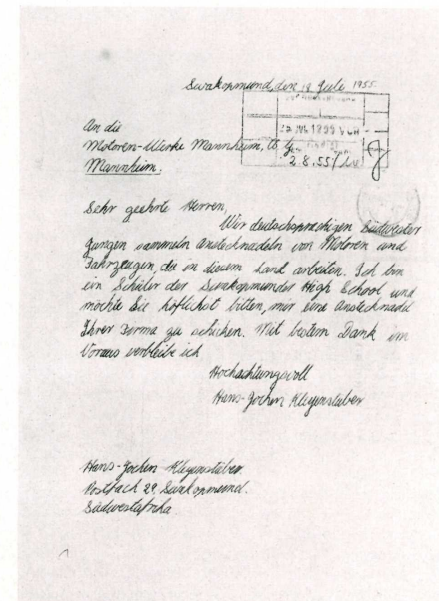 Swakopmund, den 18. Juli 1955.
An die
Motoren-Werke Mannheim,
Mannheim.
2.8.55
Sehr geehrte Herren,
Wir deutschsprachigen Südwester
Jungen sammeln Anstecknadeln von Motoren und
Fahrzeugen, die in diesem Land arbeiten. Ich bin
ein Schüler der Swakopmunder High School und
möchte Sie höflichst bitten, mir eine Anstecknadel
Ihrer Firma zu schicken. Mit bestem Dank im
Voraus verbleibe ich
Hochachtungsvoll
Hans-Jochen
Hans-Jochen
Postfach 29. Swakopmund.
Südwestafrika